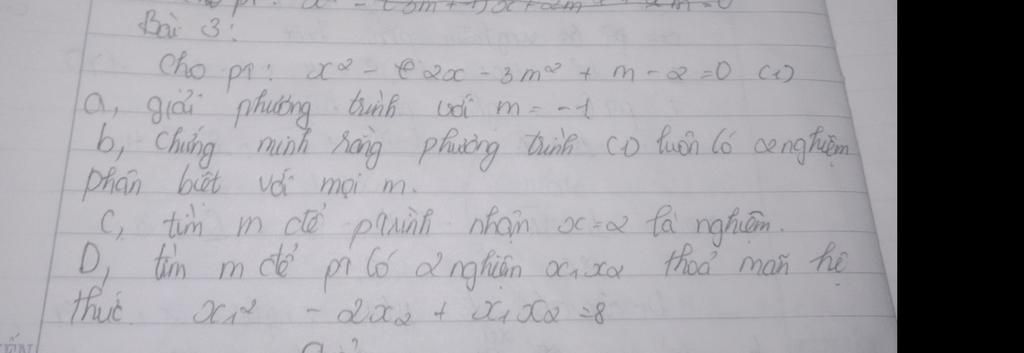 Bài 3:
Cho pt: x² - 2x - 3m² + m - 2 = 0 (1)
a, giải phương trình với m = -1
b, chứng minh rằng phương trình (1) luôn có 2 nghiệm
phân biệt với mọi m.
C, tìm m để ptrình nhận x = 2 là nghiệm.
D, tìm m để pt có 2 nghiệm x₁ x₂ thoả mãn hệ
thức x₁² - 2x₂ + x₁ x₂ = 8